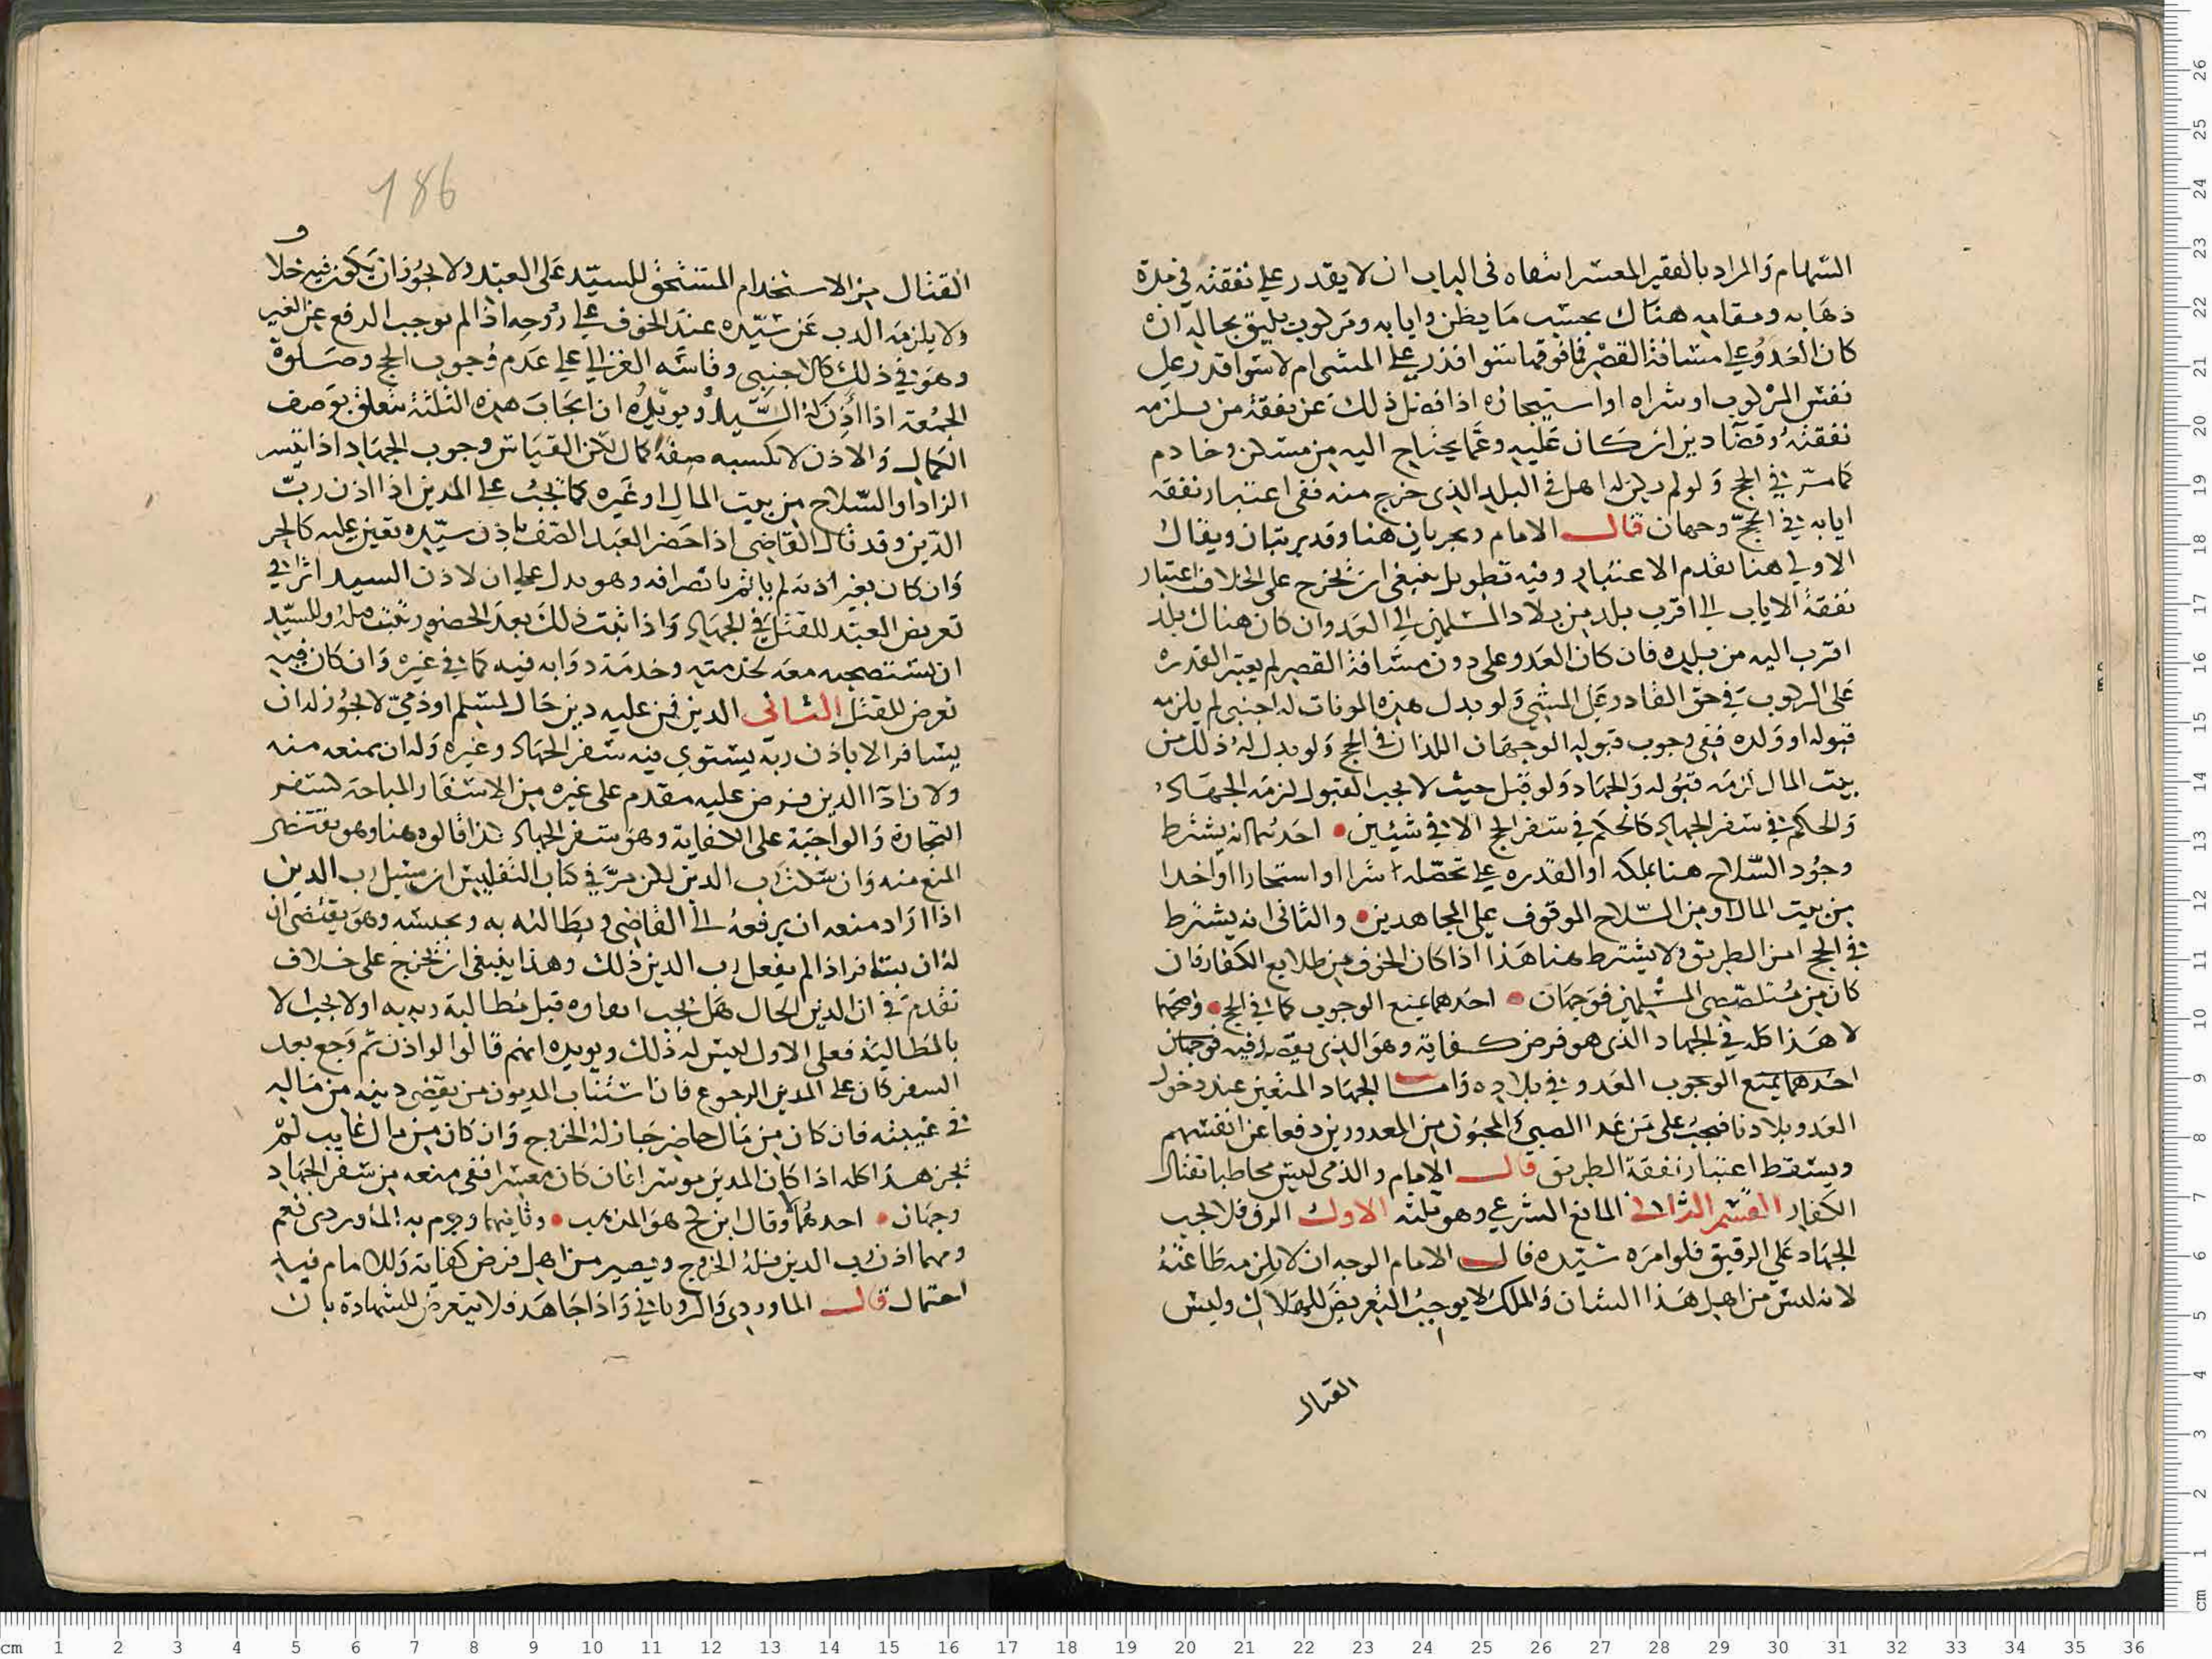 السهام والمراد بالفقير المعسر اشهاه فى الباب ان لا يقدر على نفقته في مدة
ذهابه ومقامه هناك بحسب ما يظن وايابه ومركوب يليق بحاله ان
كان العدو على مسافة القصر فما فوقها سوا قدر على المشى ام لا سوا قدر على
نفس المركوب او شراه او استيجاره اذا فضل ذلك عن نفقة من يلزمه
نفقته وقضا دين ان كان عليه وعما يحتاج اليه من مسكن وخادم
كما مر في الحج ولو لم يكن له اهل في البلد الذي خرج منه ففى اعتبار نفقة
ايابه في الحج وجهان قال الامام ويجريان هنا وقد يرتبان ويقال
الاولى هنا تقدم الاعتبار وفيه تطويل ينبغى ان تخرج على الخلاف اعتبار
نفقة الاياب الى اقرب بلد من بلاد المسلمين الى العدو وان كان هناك بلد
اقرب اليه من بلده فان كان العدو على دون مسافة القصر لم يعتبر القدره
على الركوب في حق القادر على المشى ولو بدل هذه المونات له اجنبى لم يلزمه
قبوله او ولده ففى وجوب قبوله الوجهان اللذان في الحج ولو بدل له ذلك من
بيت المال لزمه قبوله والجهاد ولو قبل حيث لا يجب القبول لزمه الجهاد
والحكم في سفر الجهاد كالحكم في سفر الحج الا في شيئين احدهما انه يشترط
وجود السلاح هنا بملكه او القدره على تحصله شرا او استيجارا او اخدا
من بيت المال او من السلاح الموقوف على المجاهدين والثانى انه يشترط
في الحج امن الطريق ولا يشترط هنا هذا اذا كان الخوف من طلايع الكفار فان
كان من متلصصى المسلمين فوجهان احدهما يمنع الوجوب كما في الحج واصحهما
لا هذا كله في الجهاد الذى هو فرض كفاية وهو الذى فيه فوجهان
احدهما يمنع الوجوب العدو في بلاده واما الجهاد المتعين عند دخول
العدو بلادنا فيجب على من عدا الصبى المجنون من المعدورين دفعا عن انفسهم
ويسقط اعتبار نفقة الطريق قال الامام والذمى ليس مخاطبا بقتال
الكفار القسم الثانى المانع الشرعي وهو ثلثه الاول الرق فلا يجب
الجهاد على الرقيق فلو امره سيده قال الامام الوجه ان لا يلزمه طاعته
لانه ليس من اهل هذا الشان والملك لا يوجب التعريض للهلاك وليس
القتال
186
القتال من الاستخدام المستحق للسيد على العبد ولا يجوز ان يكون فيه خلا
ولا يلزمه الذب عن سيده عند الخوف على روحه اذا لم نوجب الدفع عن الغير
وهو في ذلك كالاجنبى وقاسه الغزالي على عدم وجوب الحج وصلوة
الجمعة اذا اذن له السيد ويويده ان ايجاب هذه الثلثة يتعلق بوصف
الكمال والاذن لا يكسبه صفة كمال لكن القياس وجوب الجهاد اذا تيسر
الزاد او السلاح من بيت المال او غيره كما يجب على المدين اذا اذن رب
الدين وقد قال القاضى اذا حضر العبد الصف باذن سيده تعين عليه كالحر
وان كان بغير اذنه لم ياثم بانصرافه وهو يدل على ان لاذن السيد اثرا في
تعريض العبد للقتل في الجهاد واذا ثبت ذلك بعد الحضور ثبت قبله وللسيد
ان يستصحبه معه لخدمته وخدمة دوابه فيه كما في غيره وان كان فيه
تعرض للقتل الثانى الدين فمن عليه دين حال لمسلم او ذمى لا يجوز له ان
يسافر الا باذن ربه يستوى فيه سفر الجهاد وغيره وله ان يمنعه منه
ولان اداا الدين فرض عليه مقدم على غيره من الاسفار المباحة كسفر
التجارة والواجبة على الكفاية وهو سفر الجهاد كذا قالوه هنا وهو يقتضى
المنع منه وان سكت رب الدين لكن مر في كتاب التفليس ان سبيل رب الدين
اذا اراد منعه ان يرفعه الى القاضى ويطالبه به ويحبسه وهو يقتضى ان
له ان يسافر اذا لم يفعل رب الدين ذلك وهذا ينبغى ان تخرج على خلاف
تقدم في ان الدين الحال هل يجب ايفاوه قبل مطالبة ربه به او لا يجب الا
بالمطالبة فعلى الاول ليس له ذلك ويويده انهم قالوا لو اذن ثم رجع بعد
السفر كان على المدين الرجوع فان استناب المديون من يقضى دينه من ماله
في غيبته فان كان من مال حاضر جاز له الخروج وان كان من مال غايب لم
يجز هذا كله اذا كان المدين موسرا فان كان معسرا ففى منعه من سفر الجهاد
وجهان احدهما وقال ابن كج هو المذهب وثانيهما وجزم به الماوردى نعم
ومهما اذن رب الدين فله الخروج ويصير من اهل فرض كفاية وللامام فيه
احتمال قال الماوردى والرويانى واذا جاهد فلا يتعرض للشهادة بان